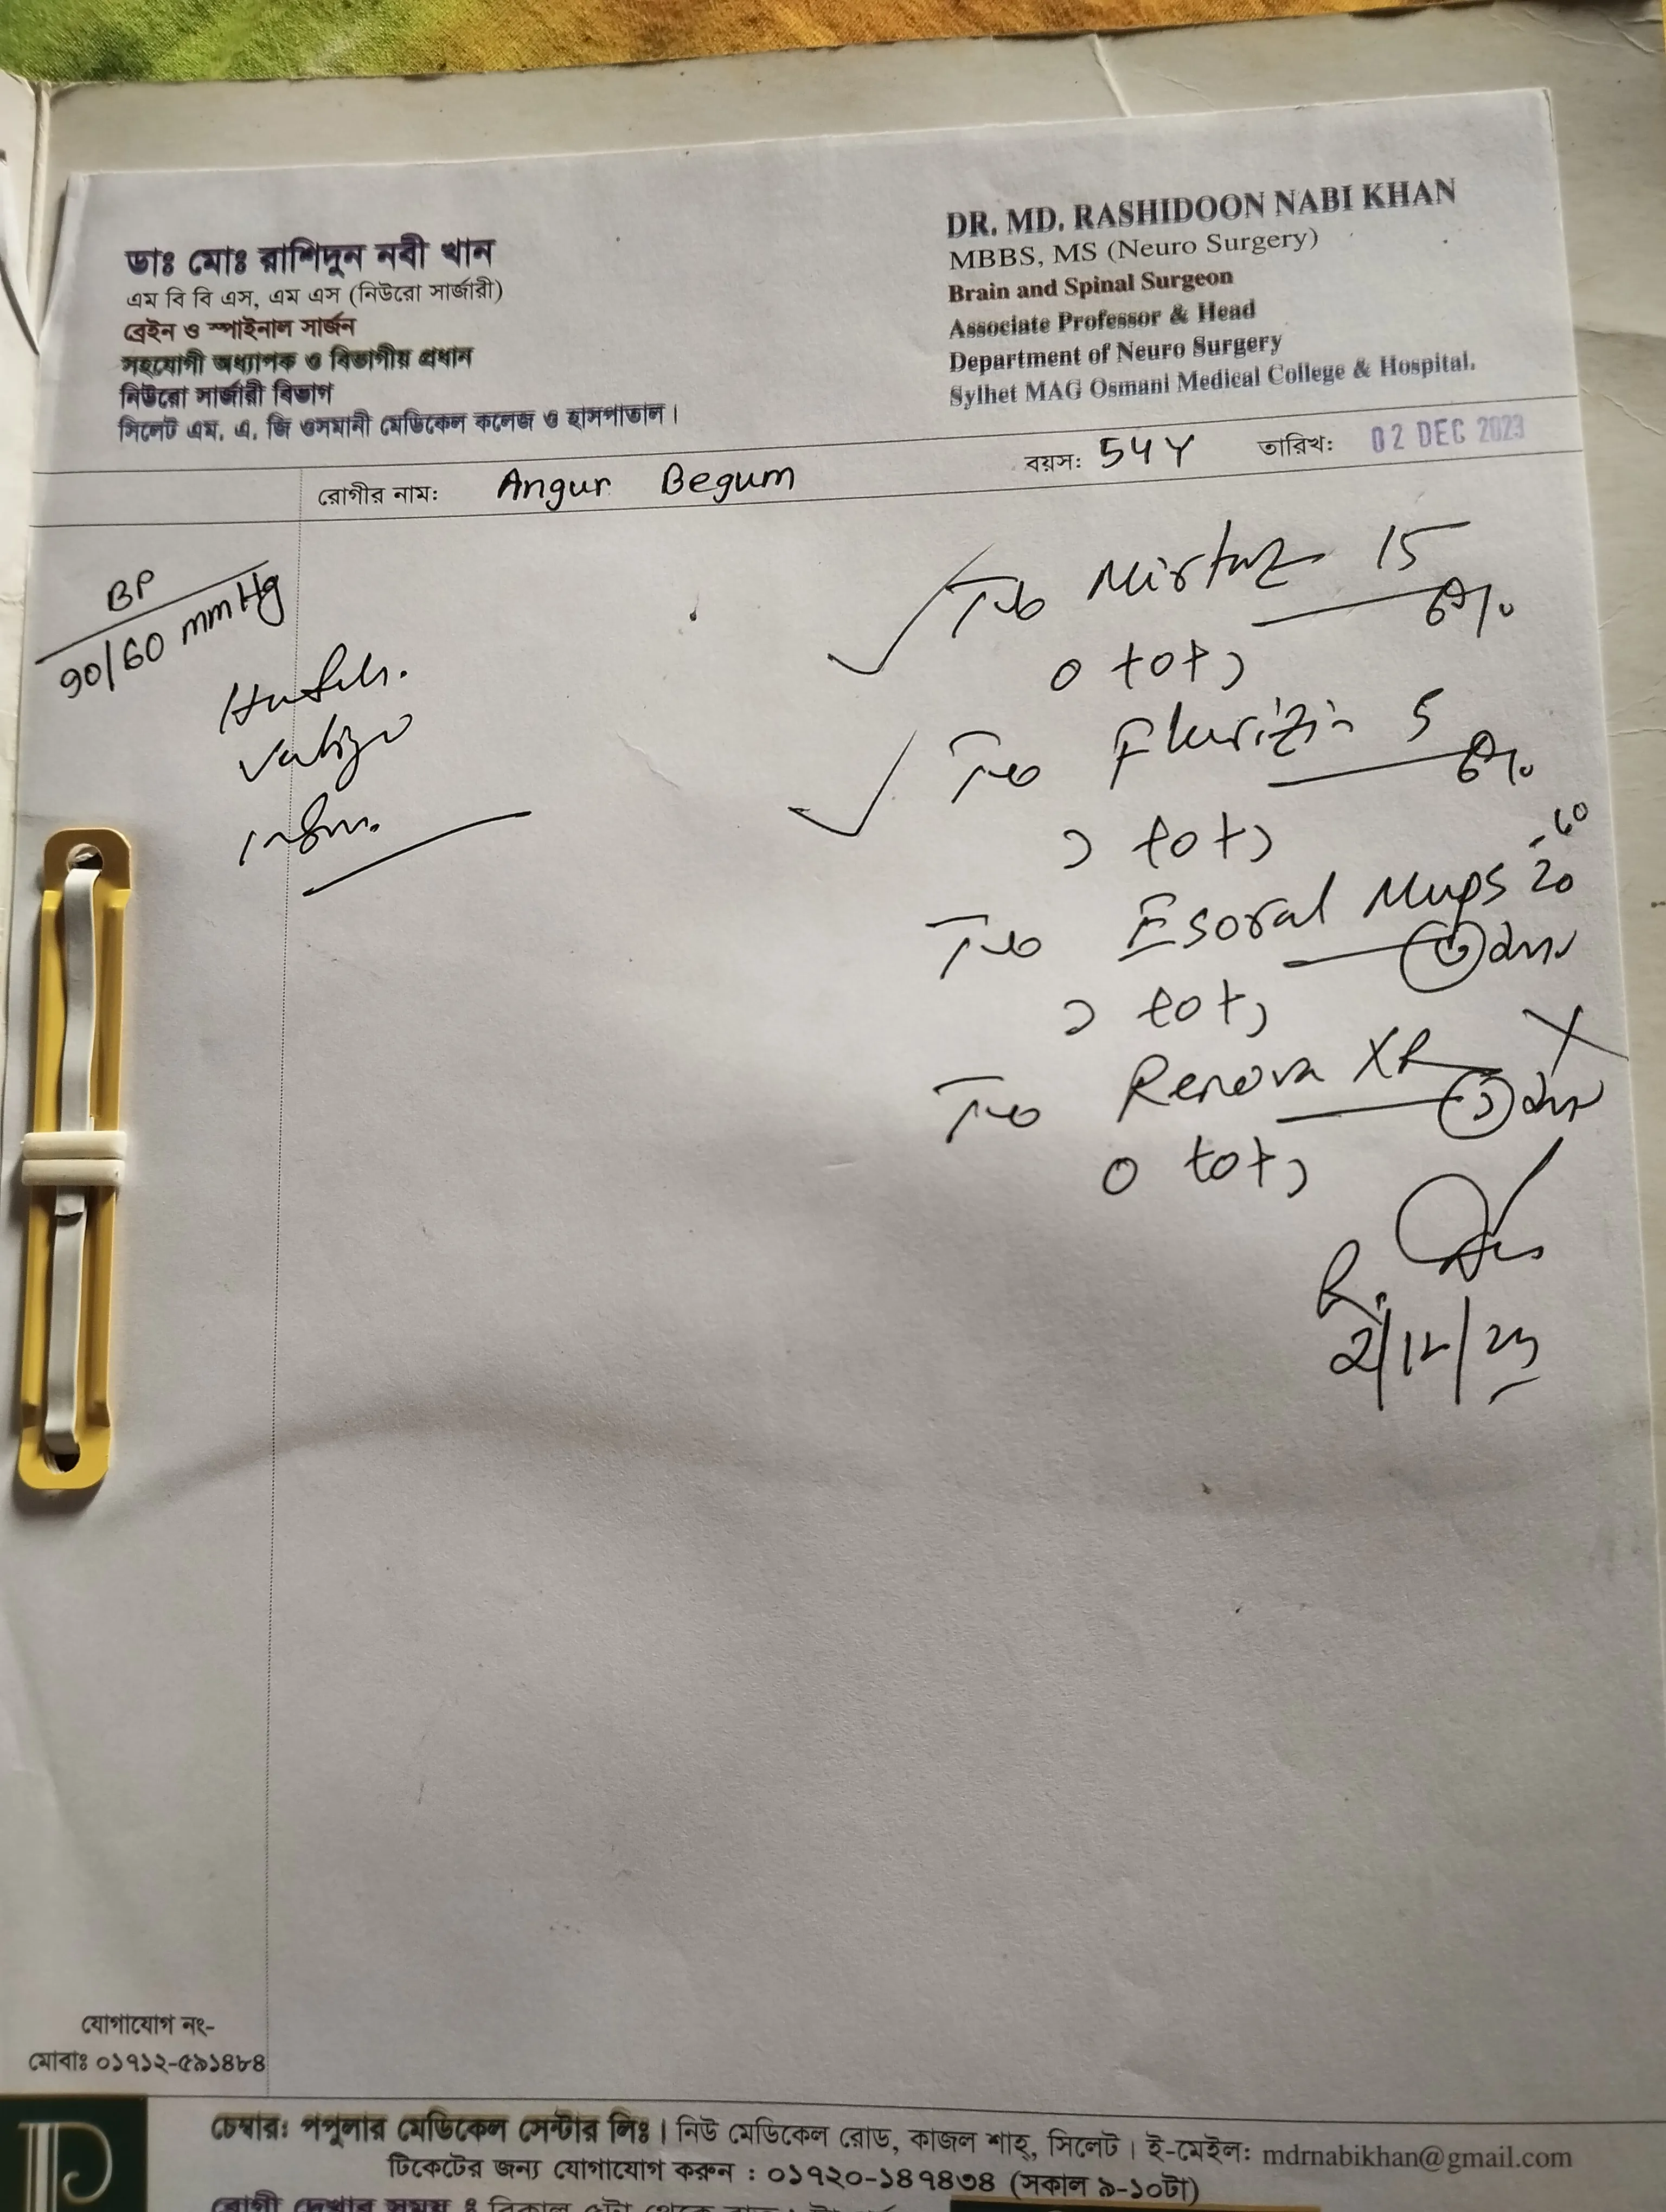 ডাঃ মোঃ রাশিদুন নবী খান
এম বি বি এস, এম এস (নিউরো সার্জারী)
ব্রেইন ও স্পাইনাল সার্জন
সহযোগী অধ্যাপক ও বিভাগীয় প্রধান
নিউরো সার্জারী বিভাগ
সিলেট এম. এ. জি ওসমানী মেডিকেল কলেজ ও হাসপাতাল।
DR. MD. RASHIDOON NABI KHAN
MBBS, MS (Neuro Surgery)
Brain and Spinal Surgeon
Associate Professor & Head
Department of Neuro Surgery
Sylhet MAG Osmani Medical College & Hospital.
রোগীর নাম: Angur Begum বয়স: 54Y তারিখ: 02 DEC 2023
BP
90/60 mmHg
Mirtaz 15
0 + 0 + ১
Flurizin 5
১ + 0 + ১
Esoral Mups 20
১ + 0 + ১
Renova XR
0 + 0 + ১
2/12/23
যোগাযোগ নং-
মোবাঃ ০১৭১২-৫৯১৪৮৪
চেম্বার: পপুলার মেডিকেল সেন্টার লিঃ। নিউ মেডিকেল রোড, কাজল শাহ্, সিলেট। ই-মেইল: mdrnabikhan@gmail.com
টিকেটের জন্য যোগাযোগ করুন : ০১৭২০-১৪৭৪৩৪ (সকাল ৯-১০টা)
রোগী দেখার সময় ঃ বিকাল ৫টা থেকে